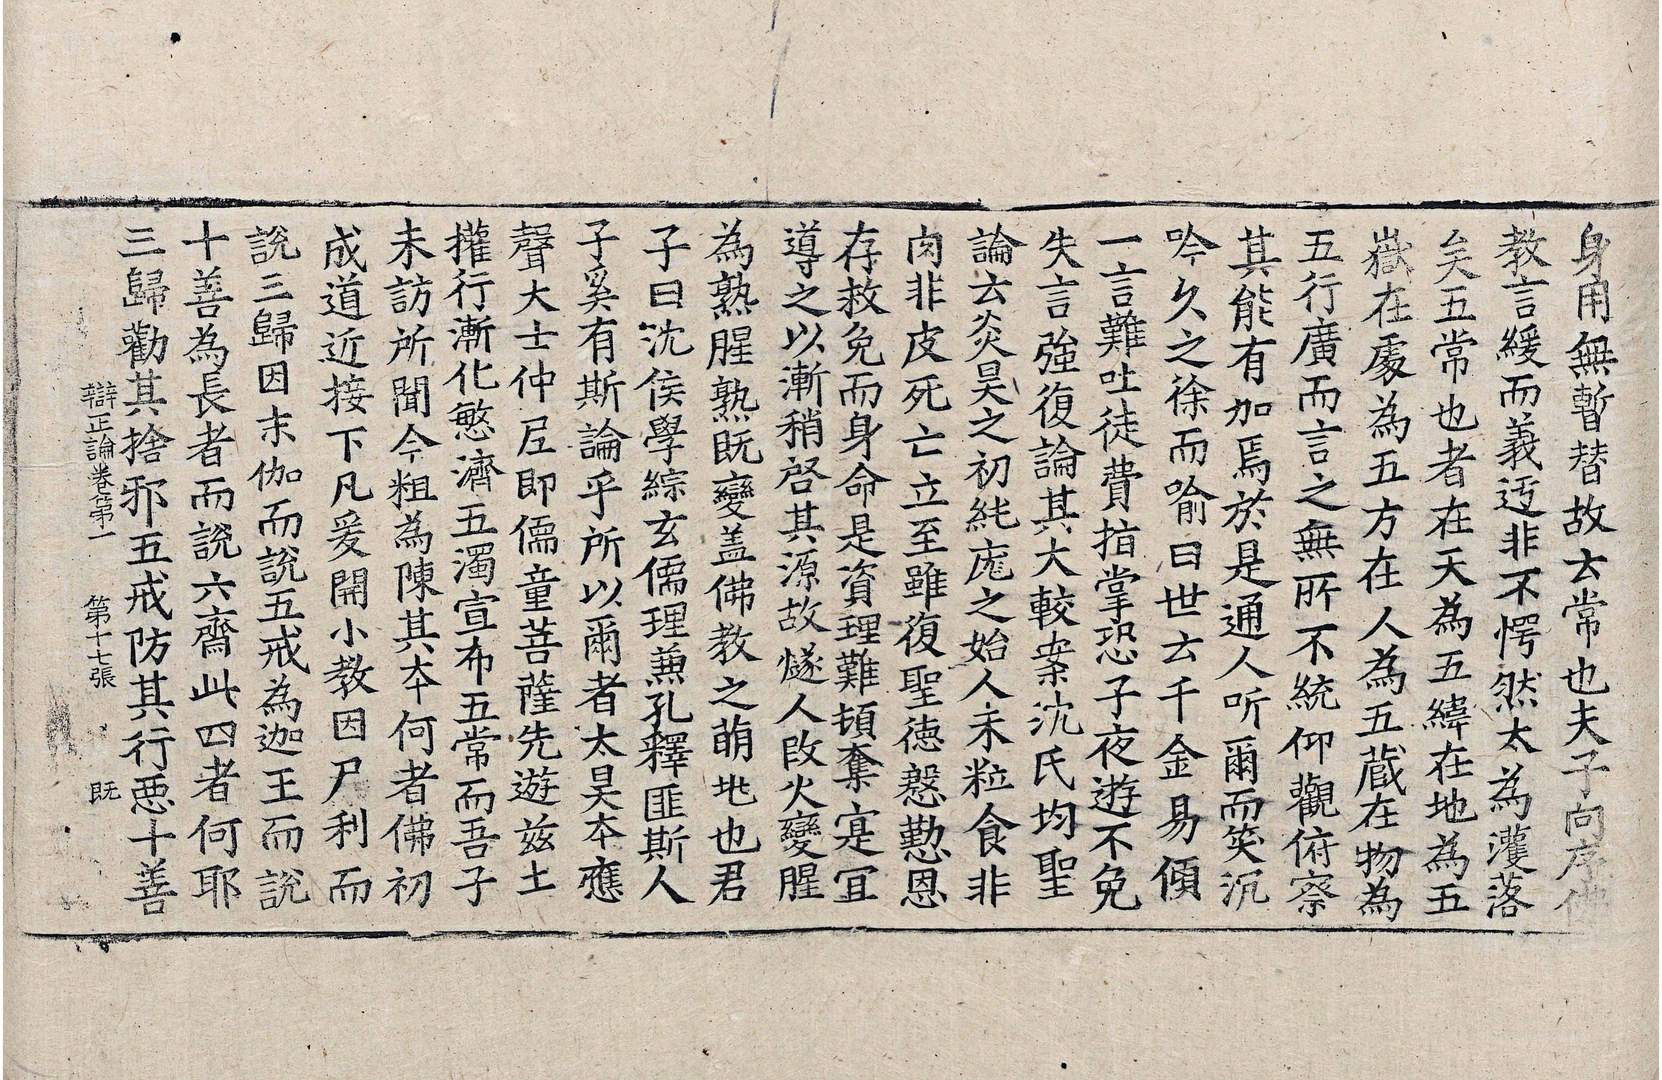 身用無暫替故去常也夫子向序佛
教言緩而義迃非不愕然太為濩落
矣五常也者在天為五緯在地為五
嶽在處為五方在人為五蔵在物為
五行廣而言之無所不統仰觀俯察
其能有加焉於是通人听爾而笑沉
吟久之徐而喻曰世云千金易傾
一言難吐徒費指掌恐子夜遊不免
失言強復論其大較案沈氏均聖
論云炎昊之初純庬之始人未粒食非
肉非皮死亡立至雖復聖徳慇懃恩
存救免而身命是資理難頓奪寔冝
導之以漸稍啓其源故燧人改火變腥
為熟腥熟既變盖佛教之萌兆也君
子曰沈侯學綜玄儒理兼孔釋匪斯人
子奚有斯論乎所以爾者太昊夲應
聲大士仲尼即儒童菩薩先遊兹土
擢行漸化慜濟五濁宣布五常而吾子
未訪所聞今粗為陳其夲何者佛初
成道近接下凡爰開小教因尸利而
說三歸因末伽而說五戒為迦王而說
十善為長者而說六齋此四者何耶
三歸勸其捨邪五戒防其行悪十善
辯正論卷第一　第十七張　既